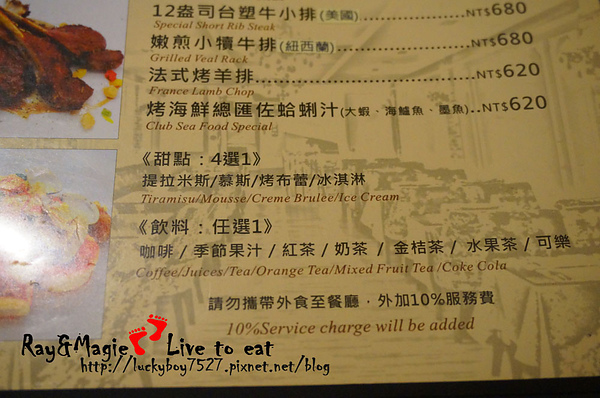 12盎司台塑牛小排(美國) NT$680
Special Short Rib Steak
嫩煎小犢牛排(紐西蘭) NT$680
Grilled Veal Rack
法式烤羊排 NT$620
France Lamb Chop
烤海鮮總匯佐蛤蜊汁(大蝦、海鱸魚、墨魚) NT$620
Club Sea Food Special
《甜點：4選1》
提拉米斯/慕斯/烤布蕾/冰淇淋
Tiramisu/Mousse/Creme Brulee/Ice Cream
《飲料：任選1》
咖啡 / 季節果汁 / 紅茶 / 奶茶 / 金桔茶 / 水果茶 / 可樂
Coffee/Juices/Tea/Orange Tea/Mixed Fruit Tea /Coke Cola
請勿攜帶外食至餐廳，外加10%服務費
10%Service charge will be added
Ray&Magie Live to eat
http://luckyboy7527.pixnet.net/blog